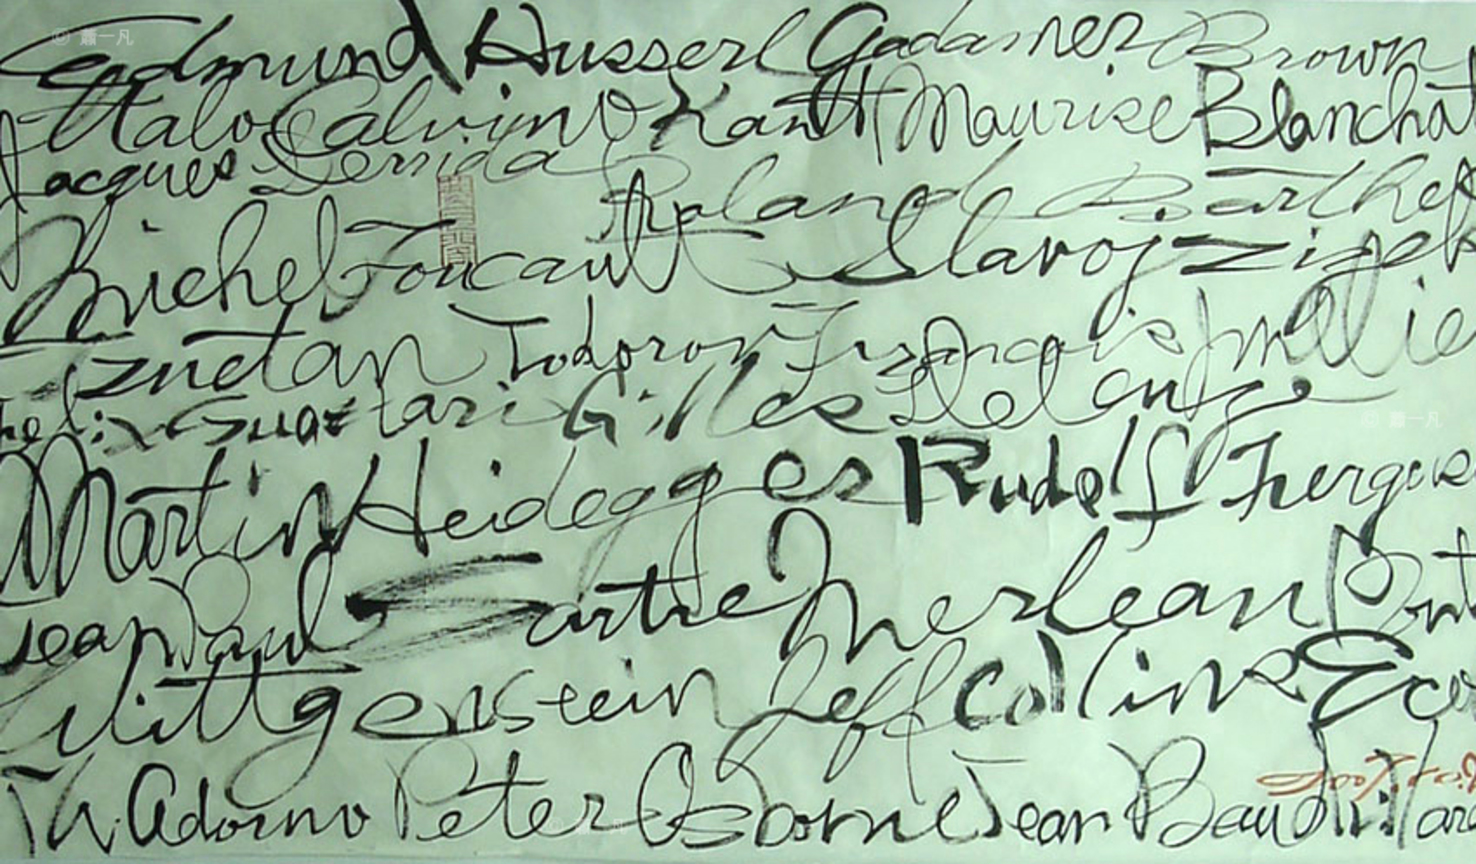 © 蕭一凡
Edmund Husserl Gadamer Brown
Italo Calvino Kant Maurise Blanchot
Jacques Derrida
Roland Barthes
Michel Foucault Slavoj Zizek
Tznetan Todorov François
Felix Guattari Gilles Deleuze
© 蕭一凡
Martin Heidegger Rudolf Fergus
Jean Paul Sartre Merleau Pont
Wittgenstein Jeff Collins Eco
Th Adorno Peter Osborne Jean Baudrillard